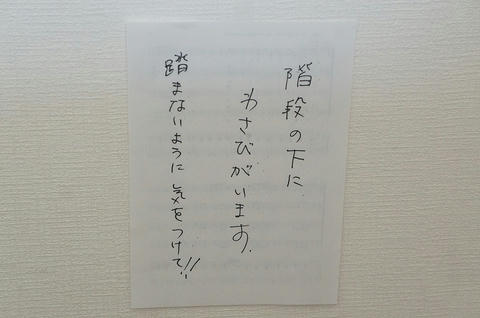 階段の下に
わさびがいます。
踏まないように気をつけて!!